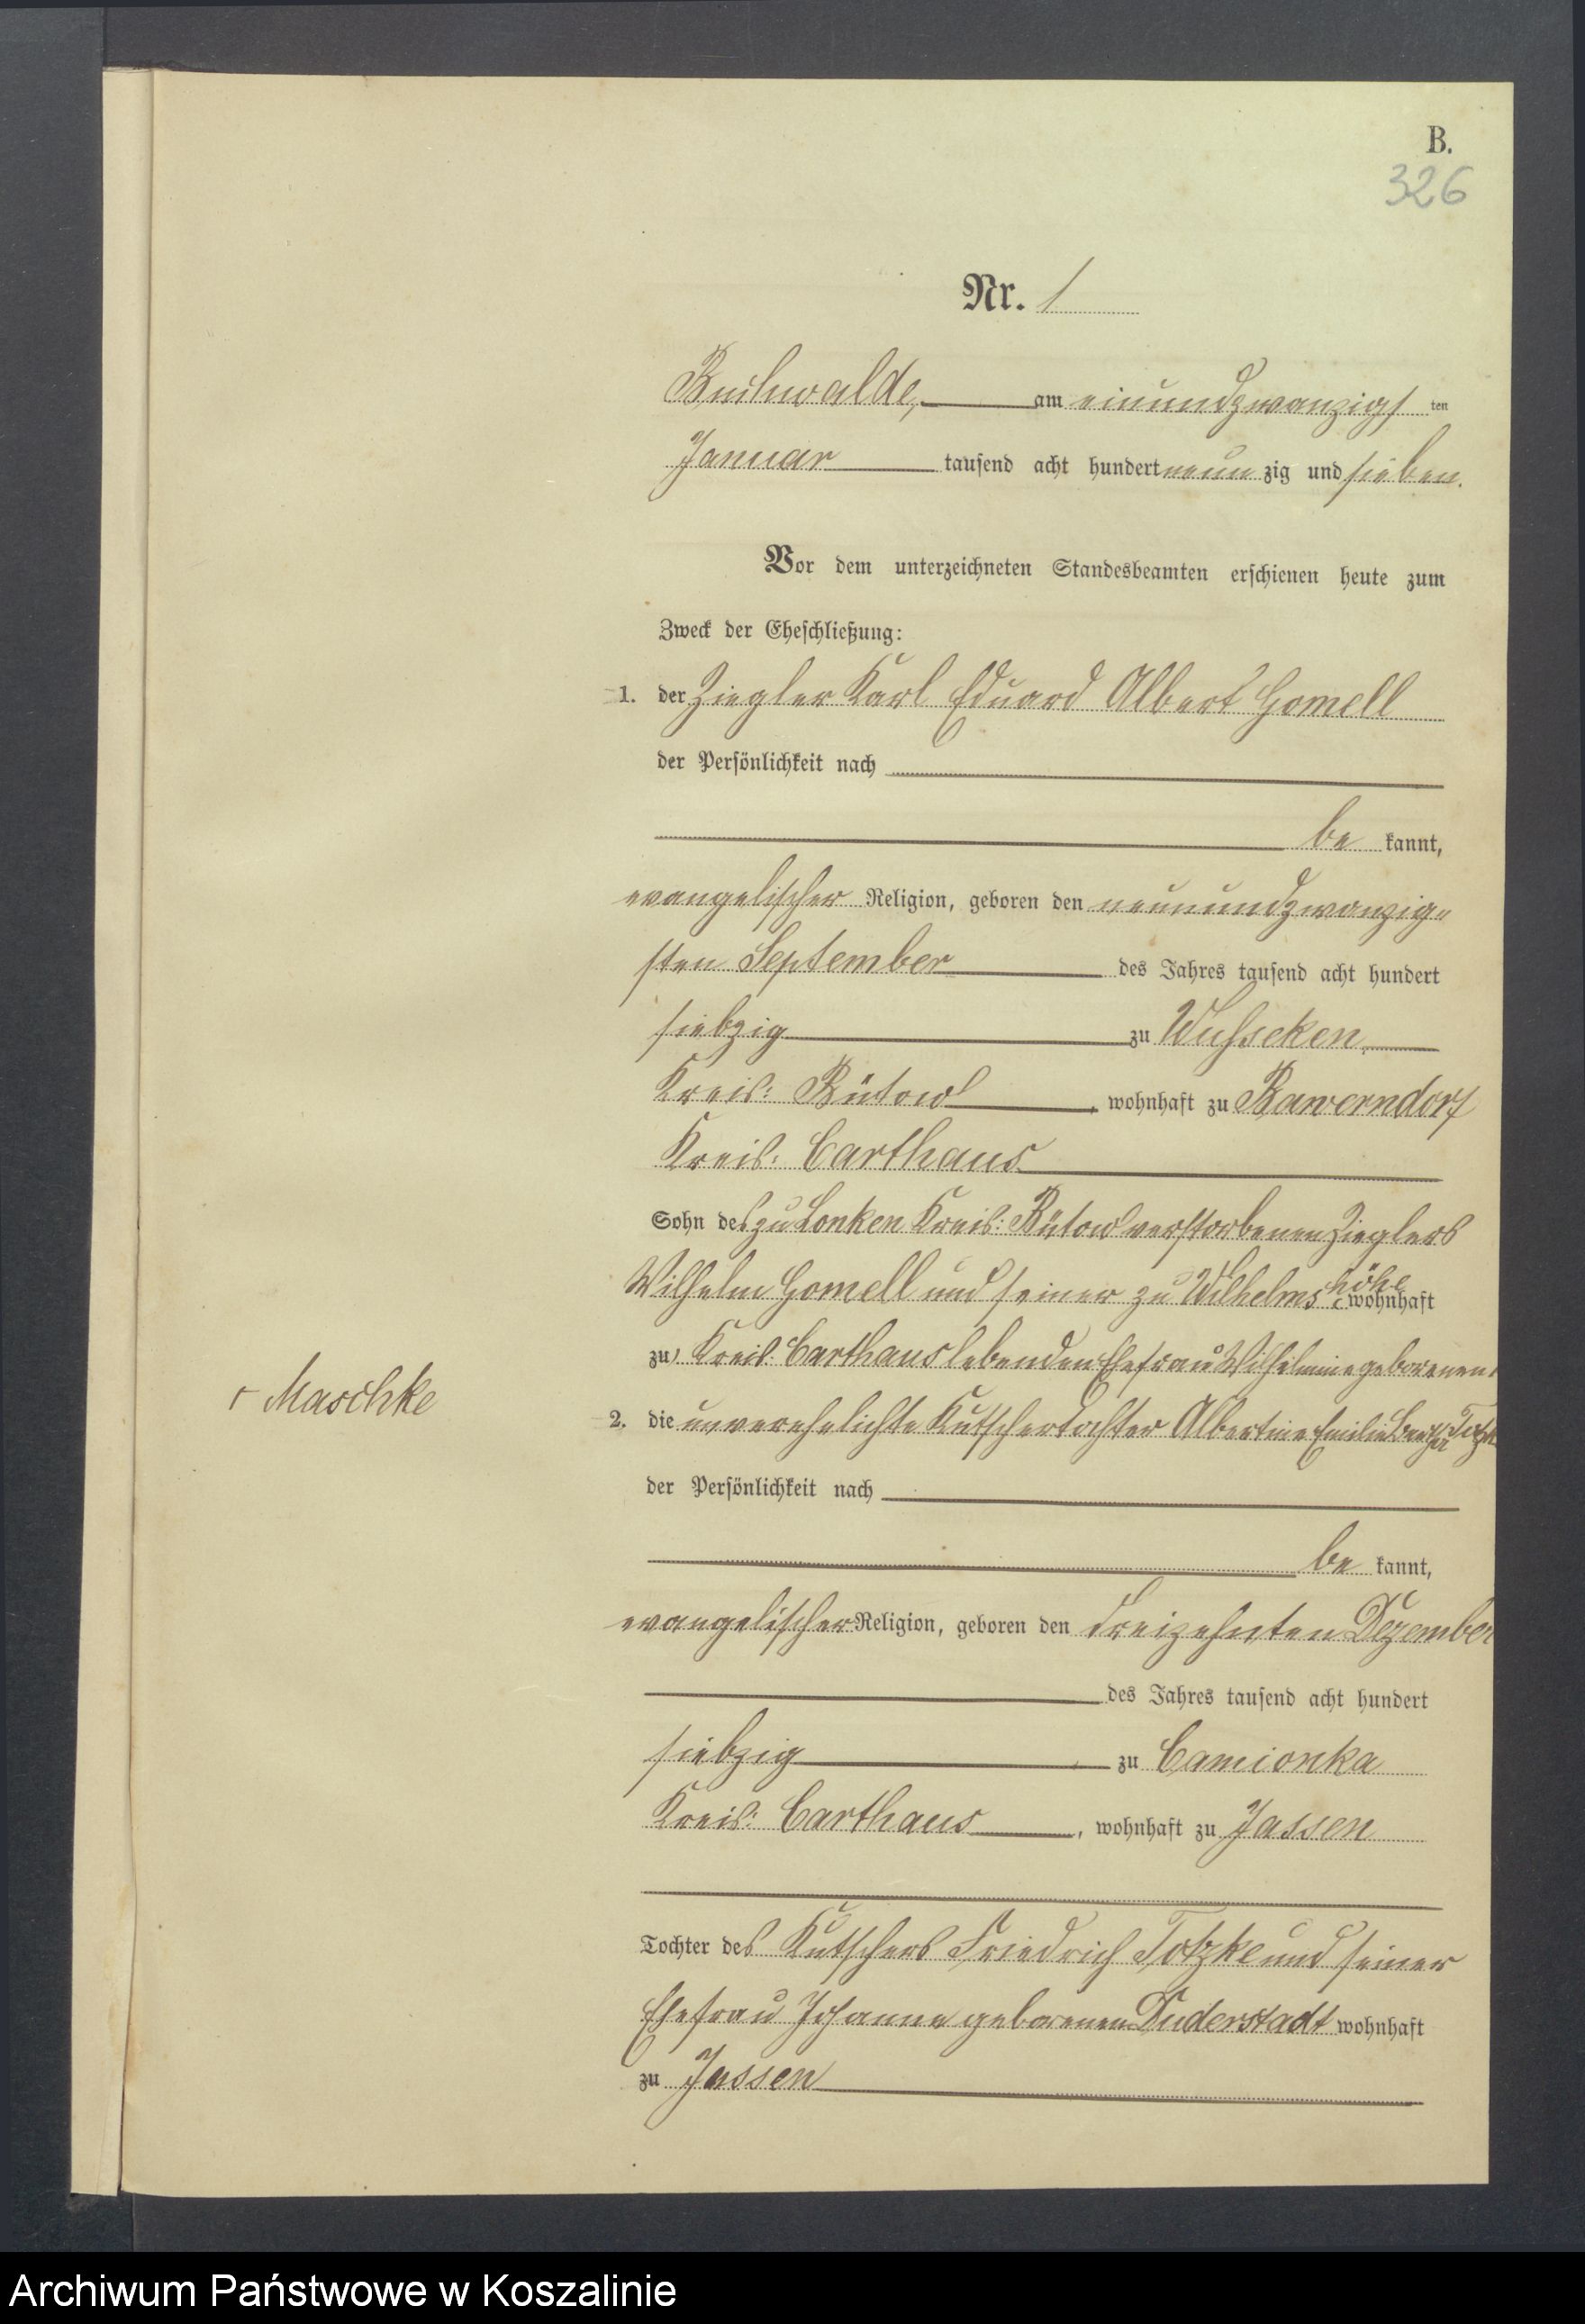 B.
326
Nr. 1
Buchwalde, am einundzwanzigsten
Januar tausend acht hundert neunzig und sieben.
Vor dem unterzeichneten Standesbeamten erschienen heute zum
Zweck der Eheschließung:
1. der Ziegler Karl Eduard Albert Gomell
der Persönlichkeit nach
be kannt,
evangelischer Religion, geboren den neunundzwanzig„
sten September des Jahres tausend acht hundert
siebzig zu Wusseken,
Kreis: Bütow, wohnhaft zu Bawerndorf
Kreis: Carthaus
Sohn des zu Lonken Kreis: Bütow verstorbenen Zieglers
Wilhelm Gomell und seiner zu Wilhelmshöhe wohnhaft
zu Kreis: Carthaus lebenden Ehefrau Wilhelmine geborenen
┌ Maschke
2. die unverehelichte Kutschertochter Albertine Emilie Bertha
der Persönlichkeit nach
be kannt,
evangelischer Religion, geboren den dreizehnten Dezember
des Jahres tausend acht hundert
siebzig zu Camionka
Kreis: Carthaus, wohnhaft zu Jassen
Tochter des Kutschers Friedrich Totzke und seiner
Ehefrau Johanne geborenen Duderstadt wohnhaft
zu Jassen
Archiwum Państwowe w Koszalinie